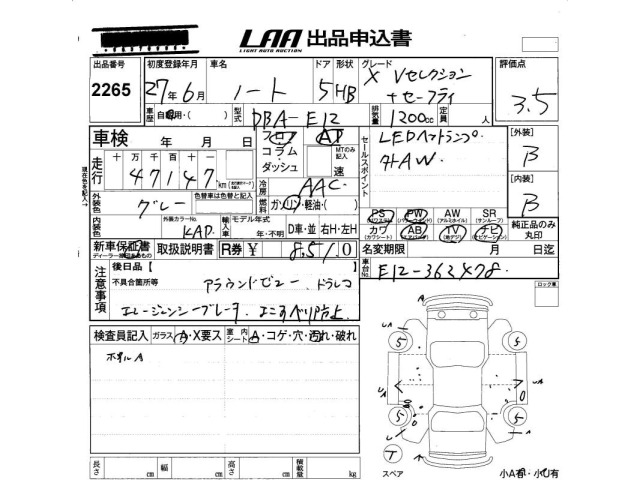 LAA 出品申込書
LIGHT AUTO AUCTION
出品番号 初度登録年月 車名 ドア 形状 グレード 評価点
2265 27年6月 ノート 5 HB X Vセレクション
+セーフティ 3.5
車歴 自家用・( ) 型式 DBA-E12 排気量 1200cc 定員 人
車検 年 月 日 フロア AT セールスポイント LEDヘッドランプ [外装]
コラム MTのみ記入 社外AW B
ダッシュ 速
走行 十万千百十一 47147 km 冷房 AAC [内装]
現在色を記入→ 外装色 グレー 色替車は色替と記入 燃料 ガソリン・軽油・( ) B
外装カラーNo. KAD 輸入車 モデル年式 年・不明 D車・並 右H・左H
内装色
PS PW AW SR
(パワステ) (パワーウインド) (アルミホイール) (サンルーフ)
カワ AB TV ナビ 純正品のみ丸印
(カワシート) (エアバッグ) (地デジ) (ナビゲーション)
新車保証書 取扱説明書 R券 ¥ 8,510 名変期限 月 日迄
ディーラー捺印あるもの
注意事項 後日品【 】 車台No. E12-362478
不具合箇所等 アラウンドビュー ドラレコ ロック車
エマージェンシーブレーキ
検査員記入 ガラス A・X要ス 室内シート A・コゲ・穴・汚れ・破れ
ホイルA
長さ cm 幅 cm 高さ cm 積載量 kg
5 5 UA
UA A
5 5
UA
T
スペア 小A有・小U有